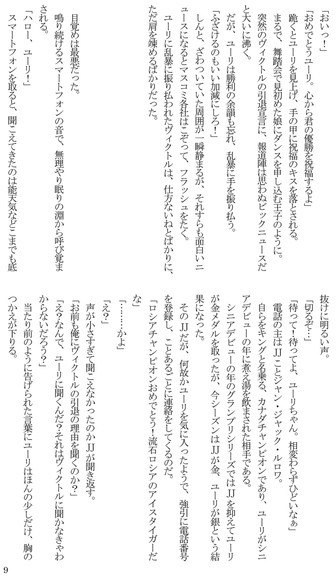 「おいっ！」
「おめでとうユーリ。心から君の優勝を祝福するよ」
跪くとユーリを見上げ、手の甲に祝福のキスを落とされる。
まるで、舞踏会で見初めた娘にダンスを申し込む王子のように。
突然のヴィクトルの引退宣言に、報道陣は思わぬビックニュースだ
と大いに沸く。
だが、ユーリは勝利の余韻も忘れ、乱暴に手を振り払う。
「ふざけるのもいい加減にしろ！」
しんと、ざわついていた周囲が一瞬静まるが、それすらも面白いニ
ュースになるとマスコミ各社はこぞって、フラッシュをたく。
ユーリに乱暴に振り払われたヴィクトルは、仕方ないねとばかりに、
ただ肩を竦めるばかりだった。
目覚めは最悪だった。
鳴り続けるスマートフォンの音で、無理やり眠りの淵から呼び覚ま
される。
「ハロー、ユーリ！」
スマートフォンを取ると、聞こえてきたのは能天気なとこまでも底
抜けに明るい声。
「切るぞ…」
「待って！待ってよ、ユーリちゃん。相変わらずひどいなぁ」
電話の主はJJことジャン・ジャック・ルロワ。
自らをキングと名乗る、カナダチャンピオンであり、ユーリがシニ
アデビューの年に煮え湯を飲まされた相手である。
シニアデビューの年のグランプリシリーズではJJを抑えてユーリ
が金メダルを取ったが、今シーズンはJJが金、ユーリが銀という結
果になった。
そのJJだが、何故かユーリを気に入ったようで、強引に電話番号
を登録し、ことあるごとに連絡をしてくるのだ。
「ロシアチャンピオンおめでとう！流石ロシアのアイスタイガーだ
な」
「………かよ」
「え？」
声が小さすぎて聞こえなかったのかJJが聞き返す。
「お前も俺にヴィクトルの引退の理由を聞くのか？」
「え？なんで、ユーリに聞くんだ？それはヴィクトルに聞かなきゃわ
からないだろう？」
当たり前のように告げられた言葉にユーリはほんの少しだけ、胸の
つかえが下りる。
9